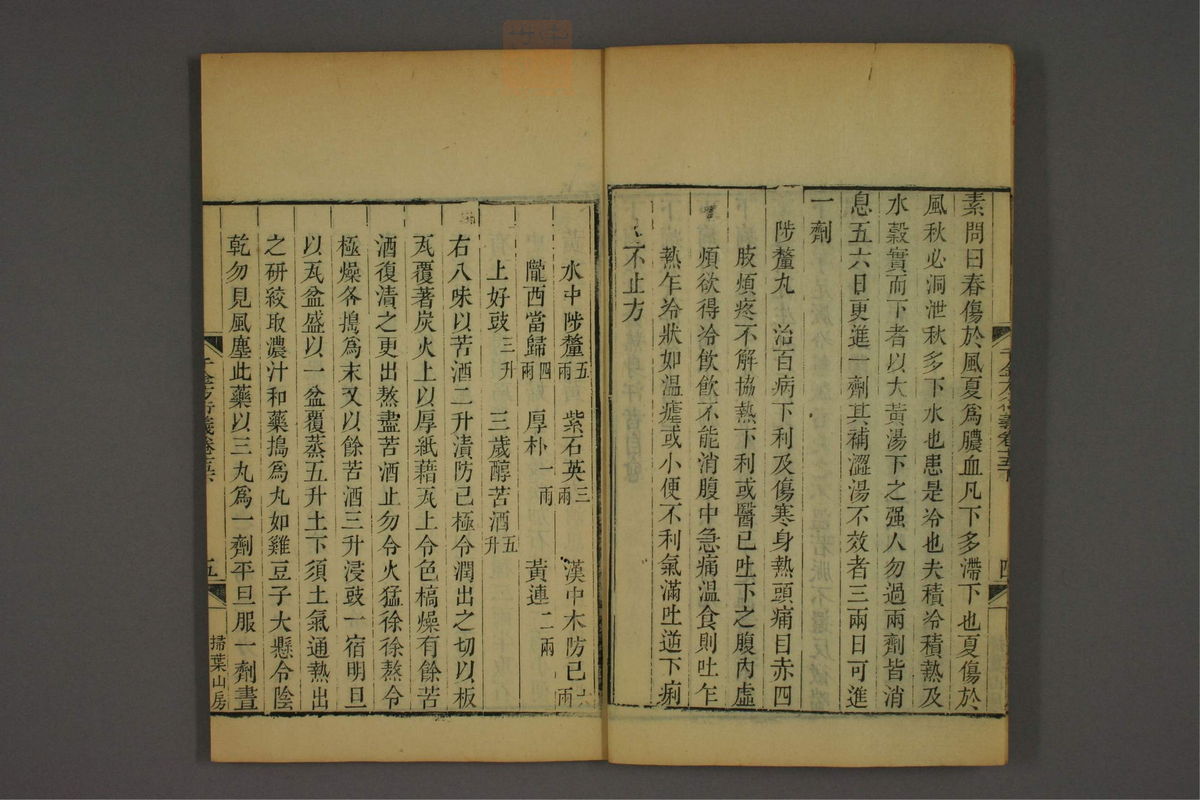 素問曰春傷於風夏爲膿血凡下多滯下也夏傷於
風秋必洞泄秋多下水也患是冷也夫積冷積熱及
水穀實而下者以大黃湯下之强人勿過兩劑皆消
息五六日更進一劑其補澀湯不效者三兩日可進
一劑
陟釐丸　治百病下利及傷寒身熱頭痛目赤四
肢煩疼不解協熱下利或醫已吐下之腹內虛
煩欲得冷飲飲不能消腹中急痛溫食則吐乍
熱乍冷狀如溫瘧或小便不利氣滿吐逆下痢
不止方
水中陟釐五兩　紫石英三兩　漢中木防已六兩
隴西當歸四兩　厚朴一兩　黃連二兩
上好豉三升　三歲醇苦酒五升
右八味以苦酒二升漬防已極令潤出之切以板
瓦覆著炭火上以厚紙藉瓦上令色槁燥有餘苦
酒復漬之更出熬盡苦酒止勿令火猛徐徐熬令
極燥各搗爲末又以餘苦酒三升浸豉一宿明旦
以瓦盆盛以一盆覆蒸五升土下須土氣通熱出
之研絞取濃汁和藥搗爲丸如雞豆子大懸令陰
乾勿見風塵此藥以三丸爲一劑平旦服一劑晝
五
掃葉山房